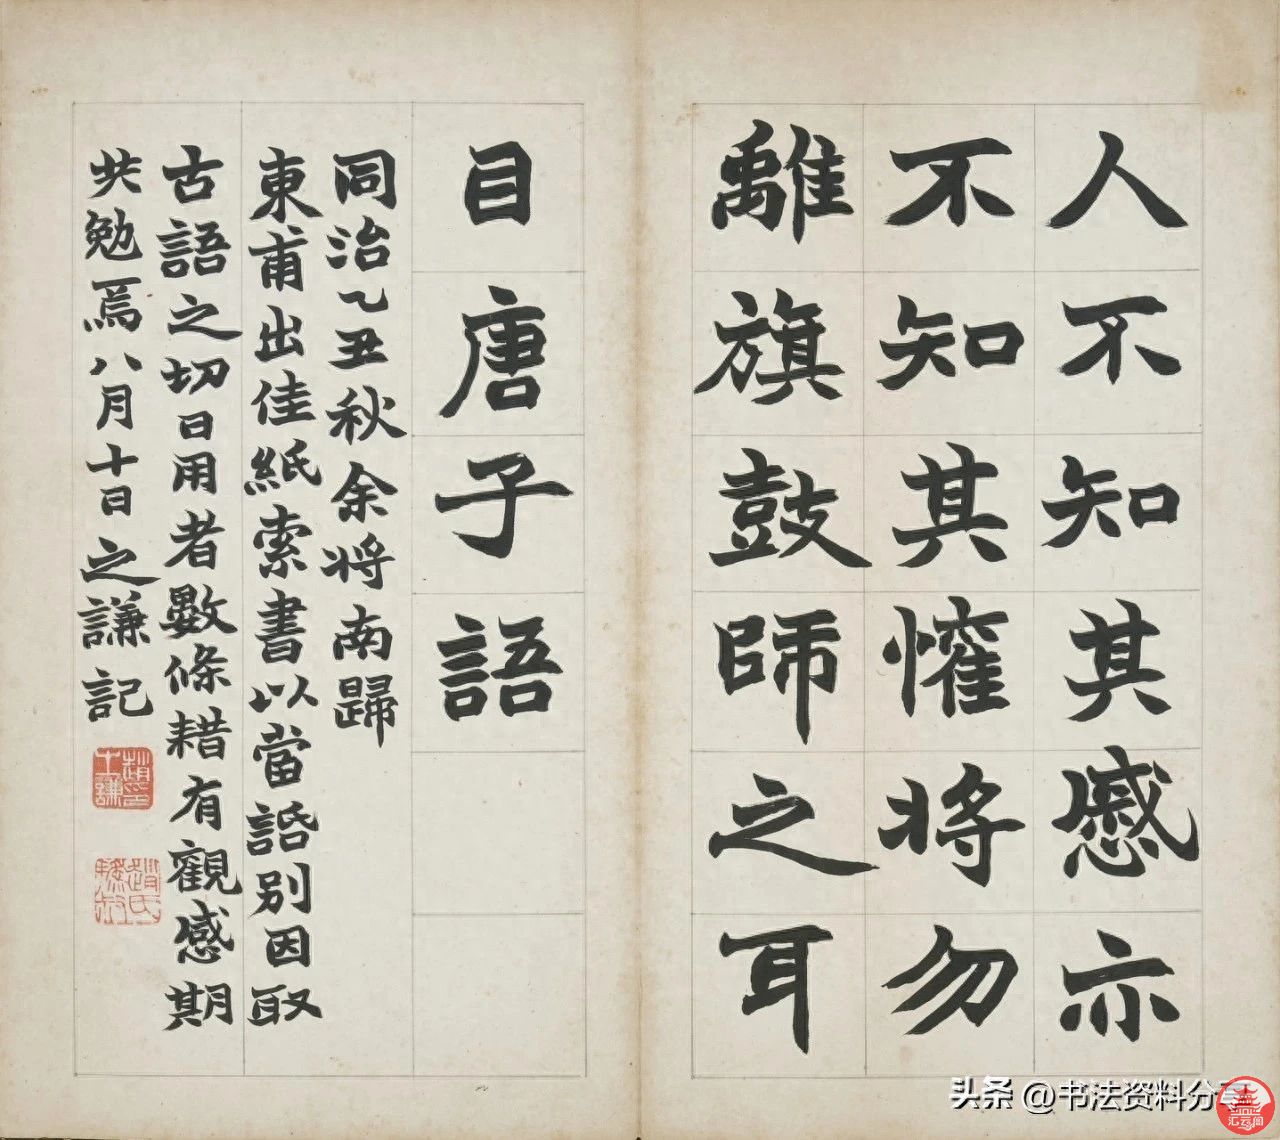 人不知其慼亦
不知其懽將勿
離旗鼓師之耳
目唐子語
同治乙丑秋余將南歸
東甫出佳紙索書以當諙別因取
古語之切日用者數條耤有觀感期
共勉焉八月十日之謙記
头条 @书法资料分享
汇云阁